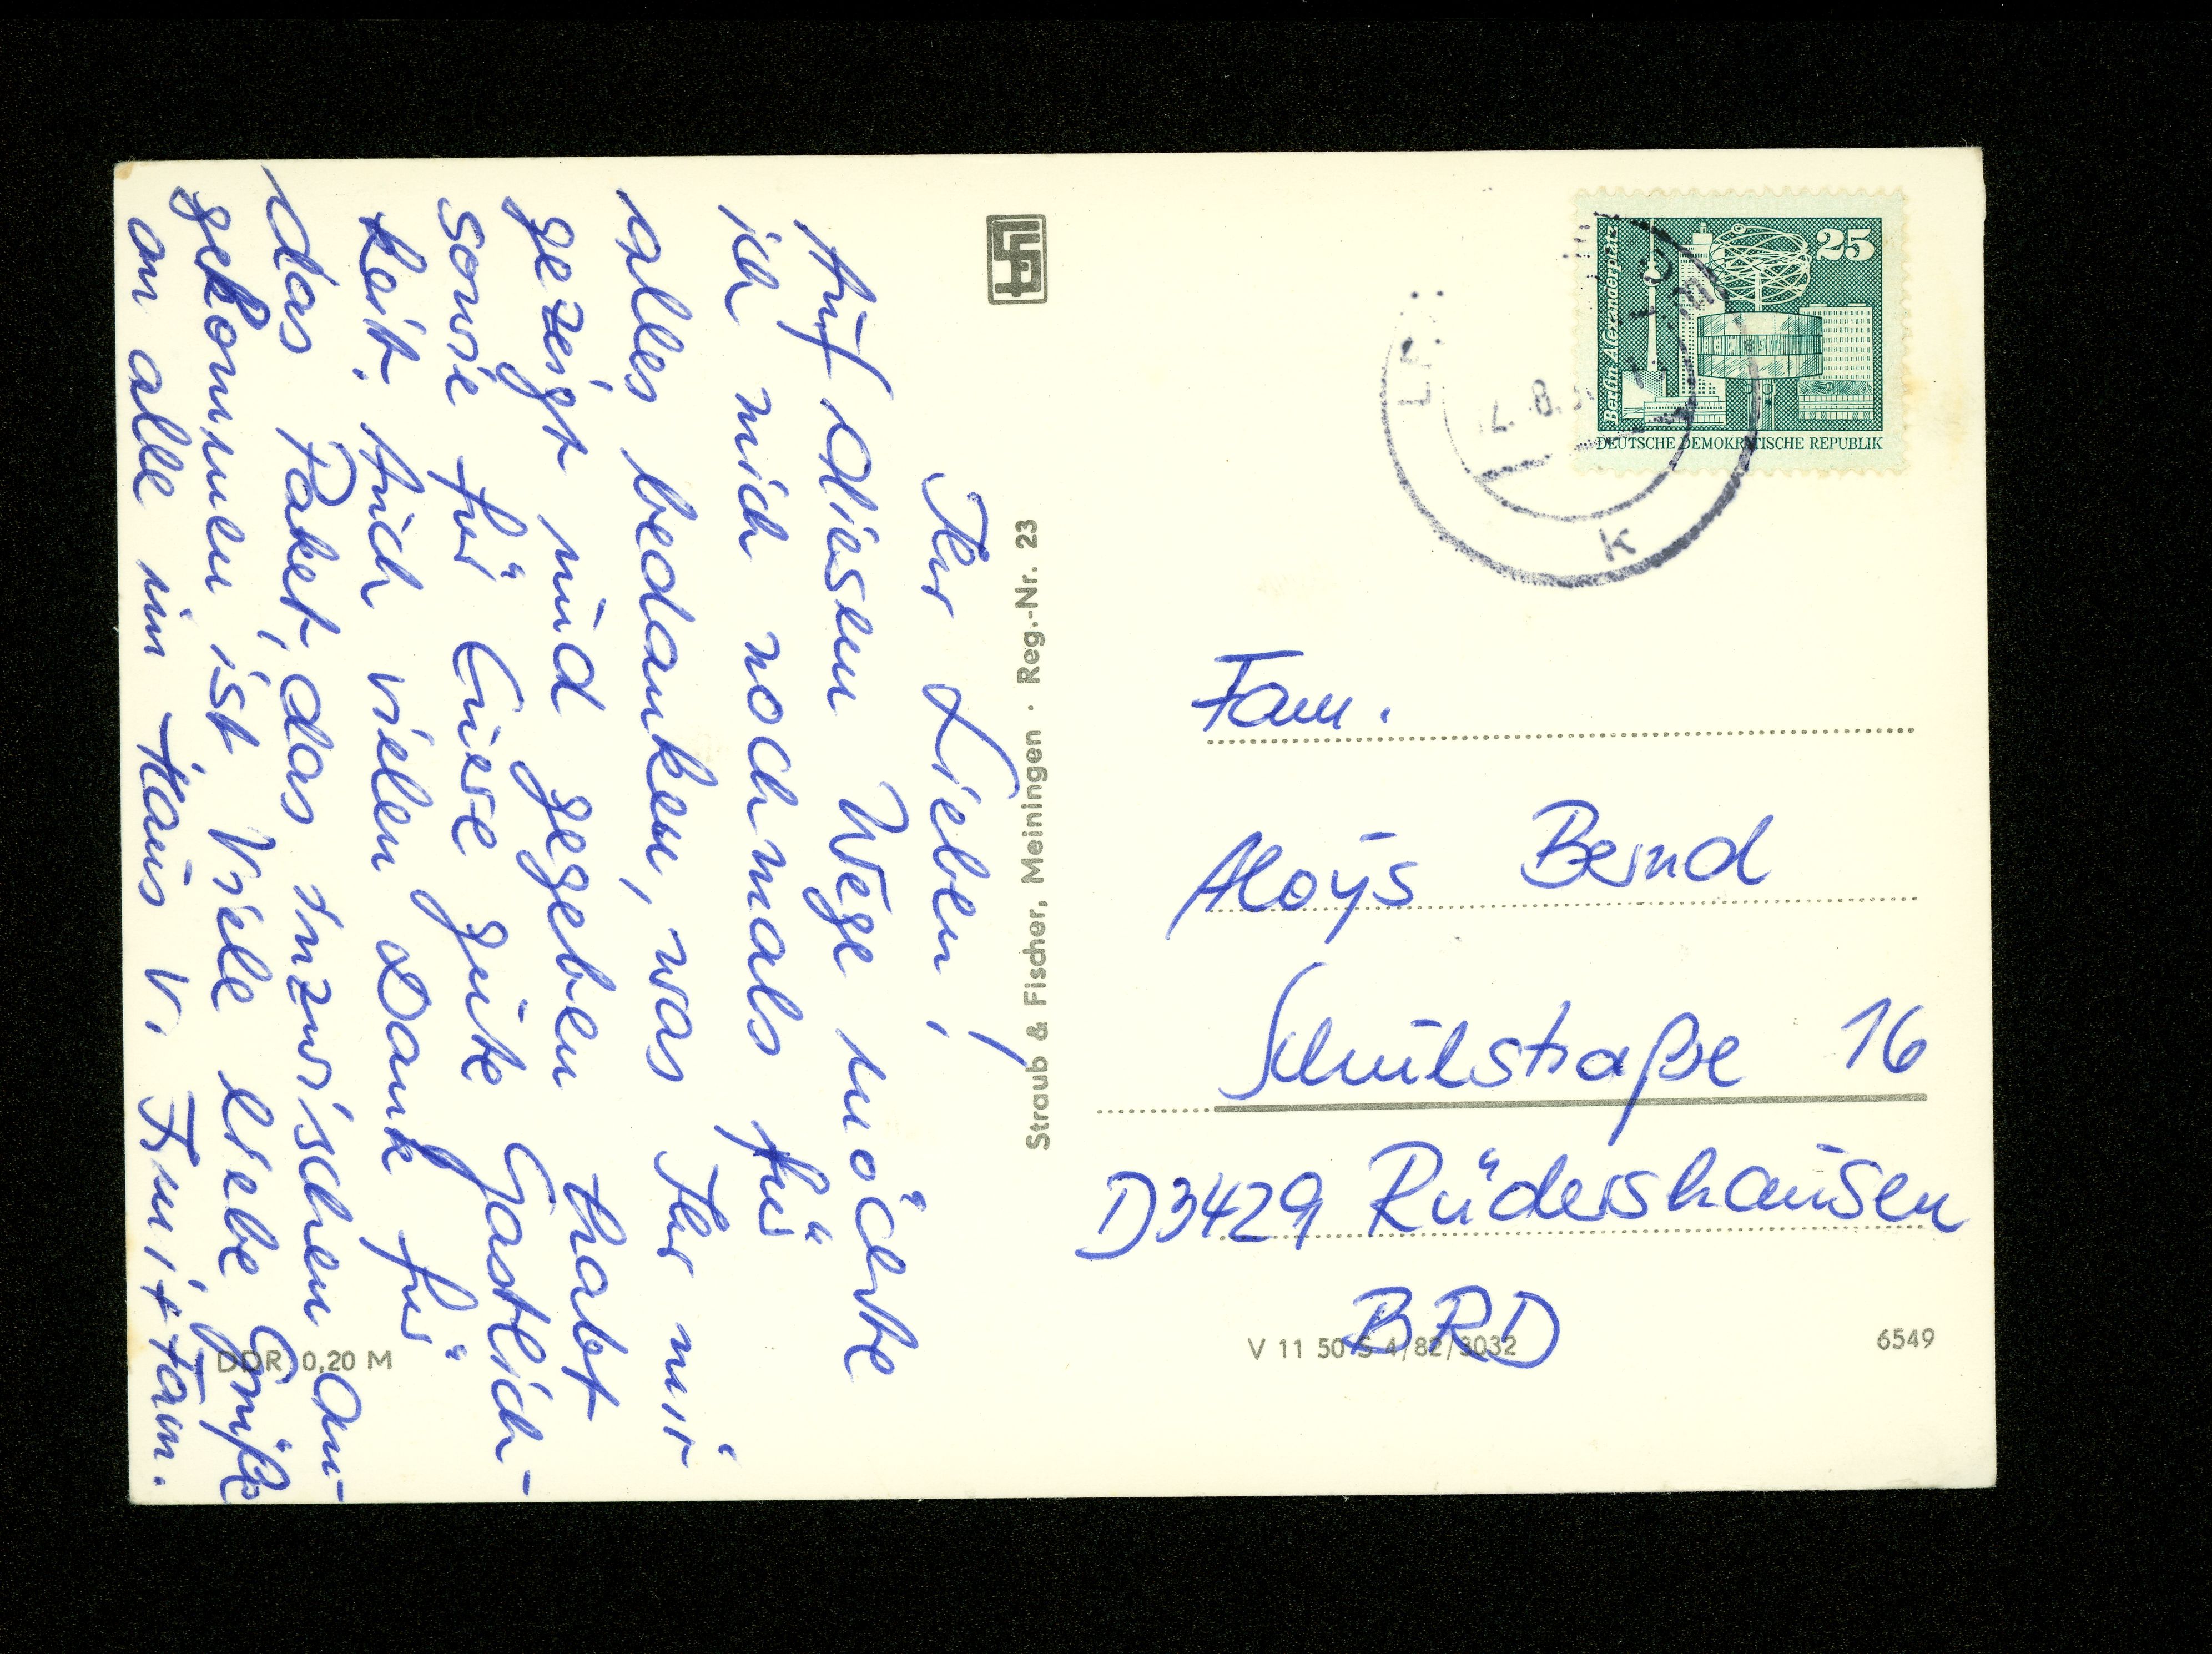 Ihr Lieben!
Auf diesem Wege möchte
ich mich nochmals für
alles bedanken, was Ihr mir
gezeigt und gegeben habt
sowie für Eure gute Gastlich-
keit. Auch vielen Dank für
das Paket, das inzwischen an-
gekommen ist. Viele liebe Grüße
an alle im Haus v. + Fam.
Straub & Fischer, Meiningen · Reg.-Nr. 23
DDR 0,20 M
25
Berlin-Alexanderplatz
DEUTSCHE DEMOKRATISCHE REPUBLIK
K
Fam.
Aloys Bernd
Schulstraße 16
D3429 Rüdershausen
BRD
V 11 50 S 4/82/3032
6549